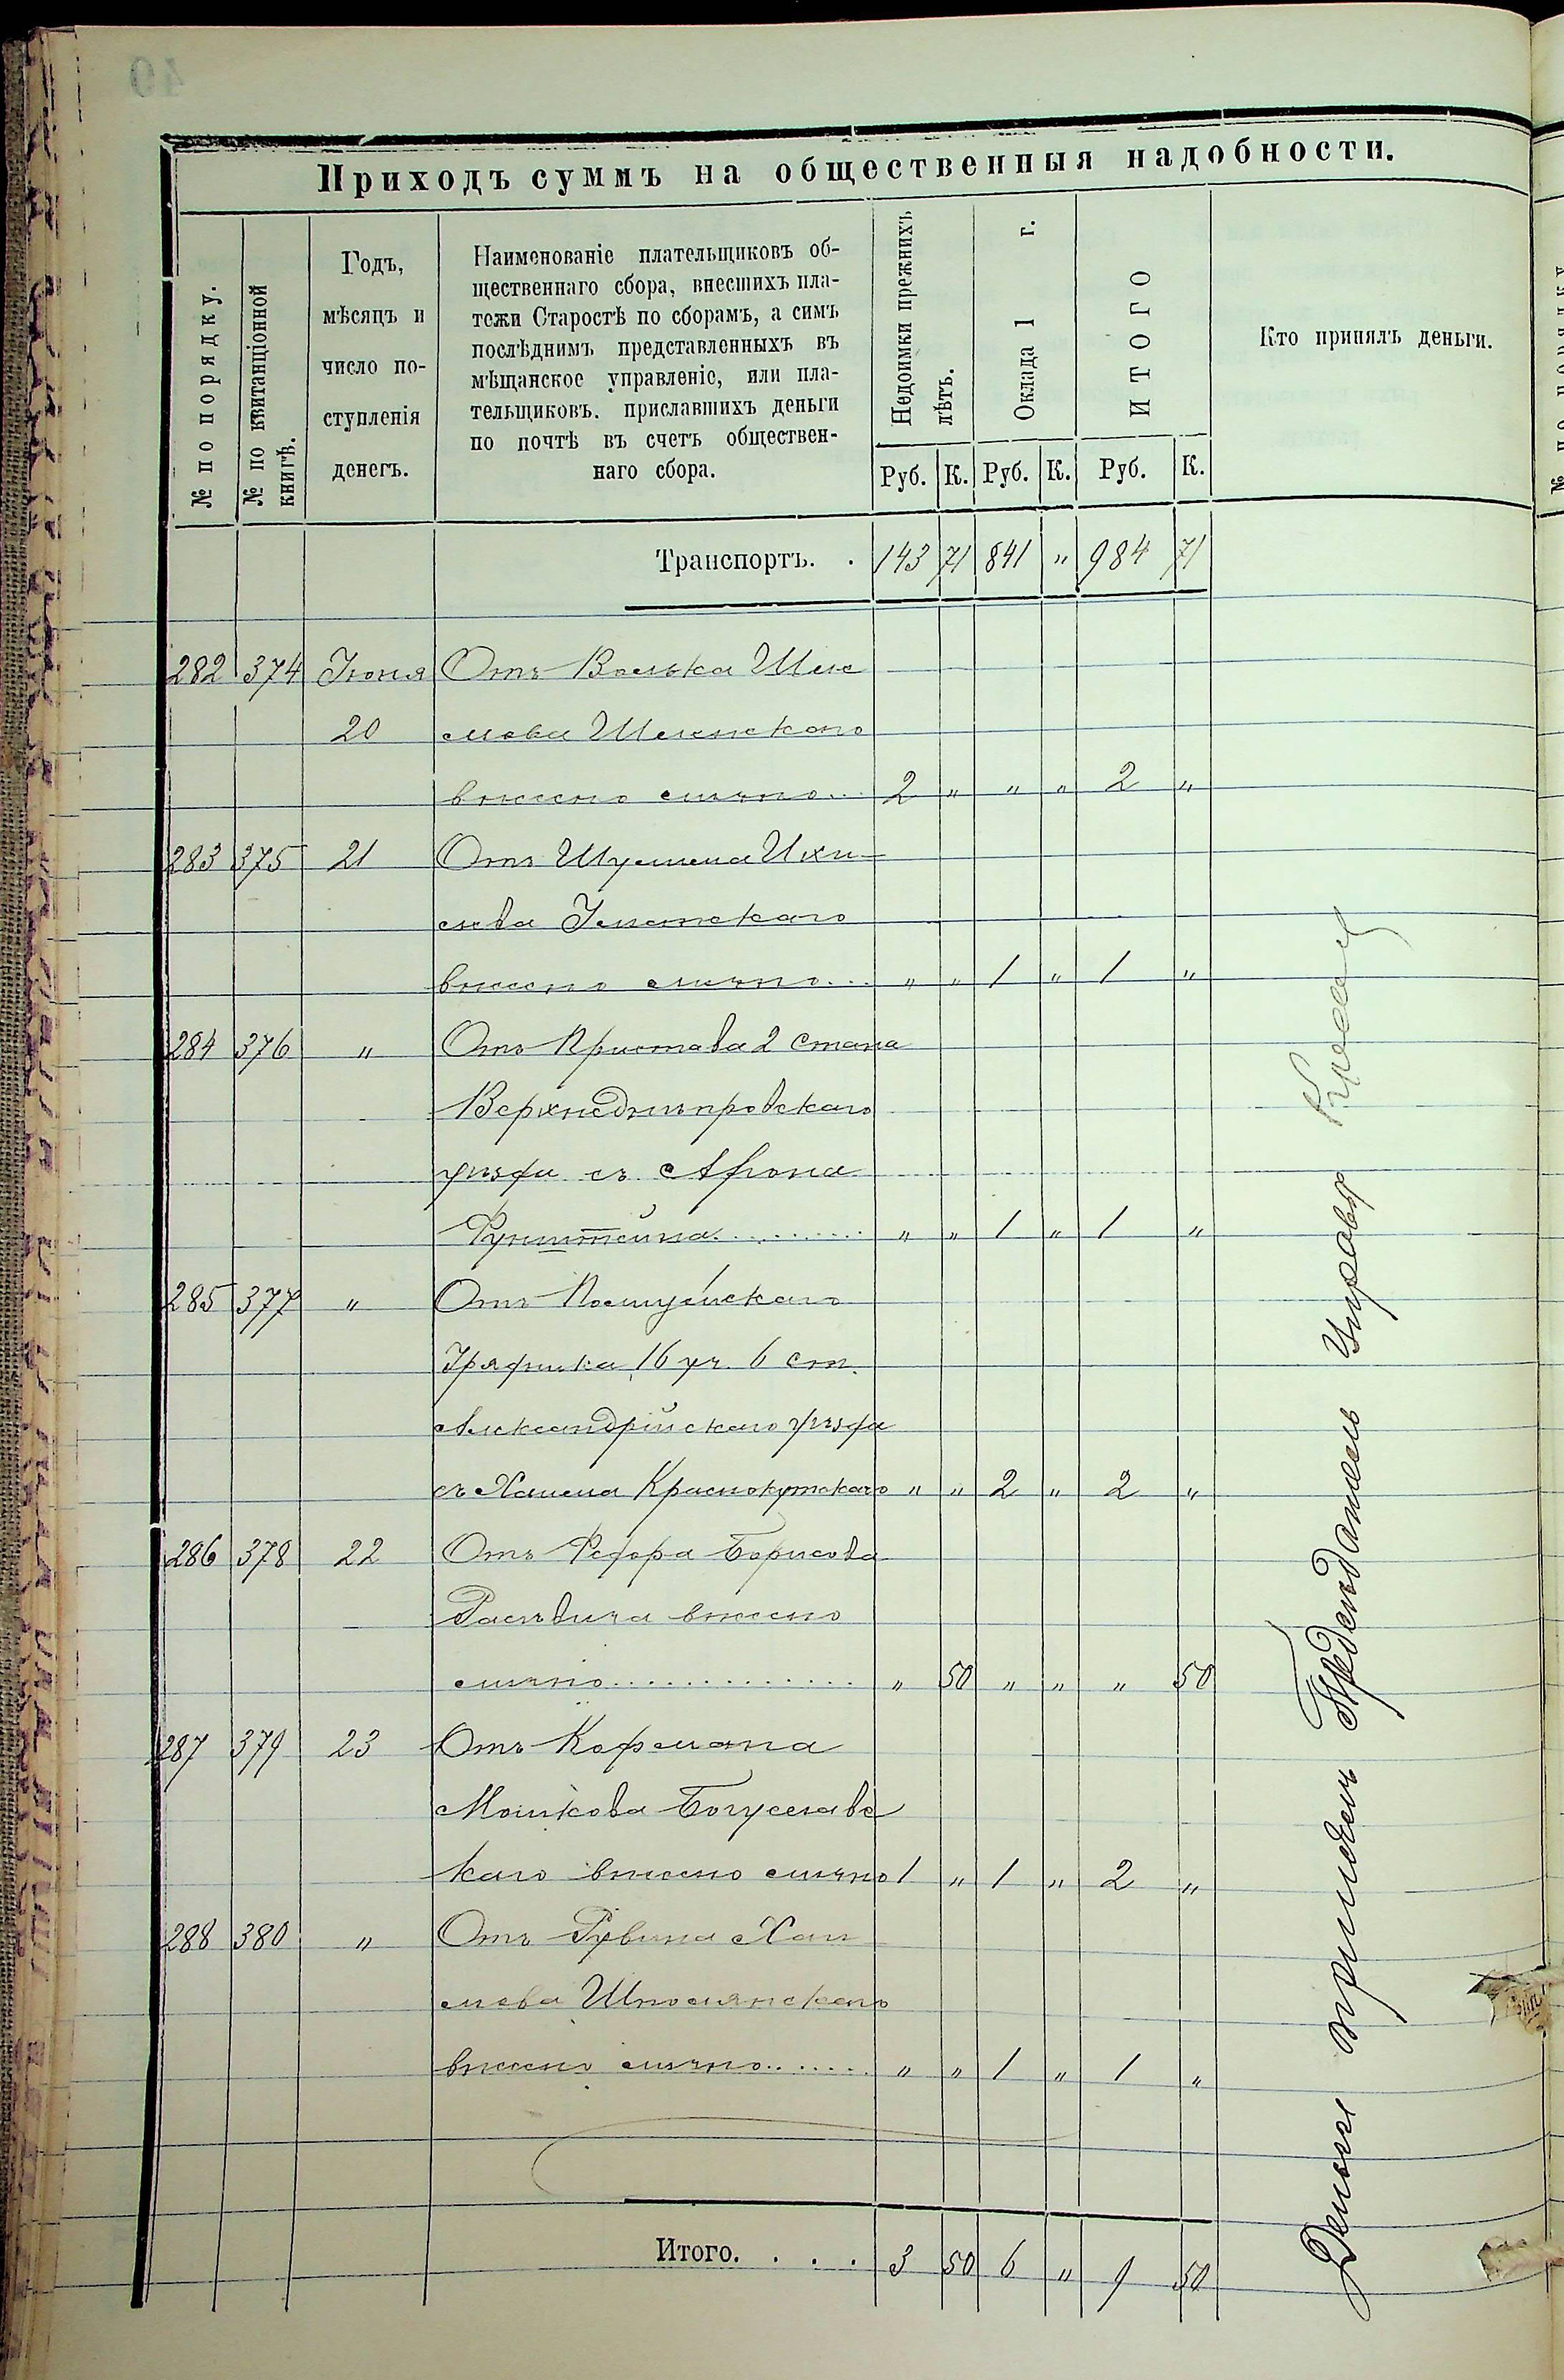 Приходъ суммъ на общественныя надобности.
№ по порядку.
№ по квитанціонной книгѣ.
Годъ,
мѣсяцъ и
число по-
ступленія
денегъ.
Наименованіе плательщиковъ об-
щественнаго сбора, внесшихъ пла-
тежи Старостѣ по сборамъ, а симъ
послѣднимъ представленныхъ въ
мѣщанское управленіе, или пла-
тельщиковъ. приславшихъ деньги
по почтѣ въ счетъ обществен-
наго сбора.
Недоимки прежнихъ лѣтъ.
Оклада 1 г.
ИТОГО
Кто принялъ деньги.
Руб. К. Руб. К. Руб. К.
Транспортъ. . 143 71 841 " 984 71
282 374 Іюня Отъ Волька
20
внесено лично... 2 " " " 2 "
283 375 21 Отъ
внесено лично... " " 1 " 1 "
284 376 " Отъ Пристава 2 Стана
Верхнеднѣпровскаго
уѣзда съ Арона
" " 1 " 1 "
285 377 " Отъ Полицейскаго
Урядника 16 уч. 6 ст.
Александрійскаго уѣзда
съ Хаима Краснокутскаго " " 2 " 2 "
286 378 22 Отъ Борисова
внесено
лично............. " 50 " " " 50
287 379 23 Отъ Кофмана
Мошкова Богуславс
каго внесено лично 1 " 1 " 2 "
288 380 " Отъ Рувина Хаи
мова Шполянскаго
внесено лично....... " " 1 " 1 "
Итого. . . . 3 50 6 " 9 50
Деньги принялъ Предсѣдатель Управы